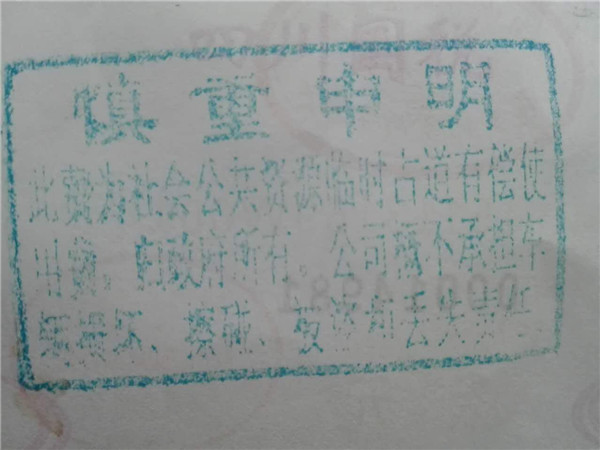 慎重申明
此费为社会公共资源临时占道有偿使
用费。归政府所有。公司概不承担车
辆损坏、擦碰、被盗和丢失责任